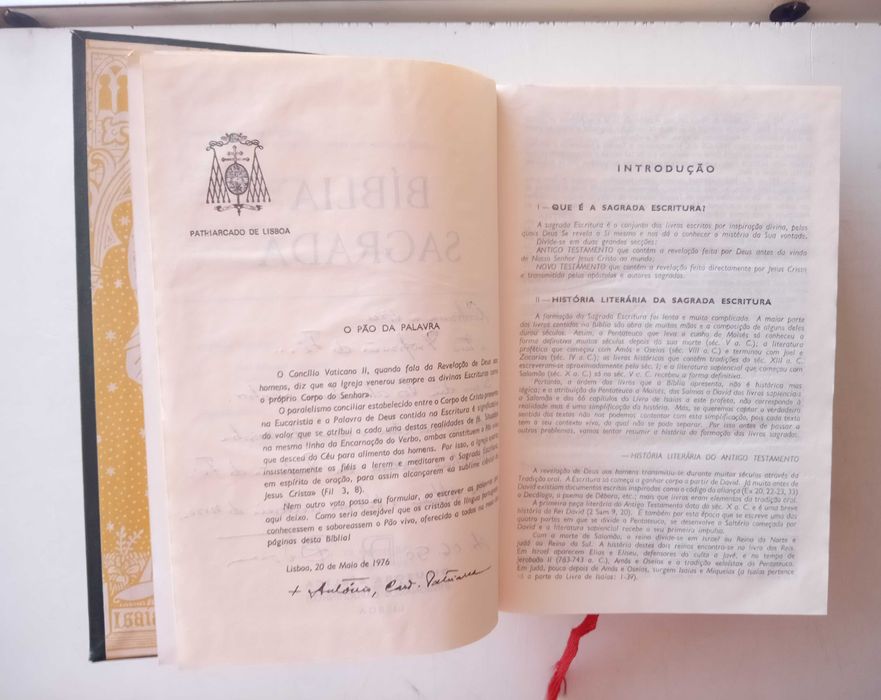 PATRIARCADO DE LISBOA
O PÃO DA PALAVRA
O Concílio Vaticano II, quando fala da Revelação de Deus aos
homens, diz que «a Igreja venerou sempre as divinas Escrituras como
o próprio Corpo do Senhor».
O paralelismo conciliar estabelecido entre o Corpo de Cristo presente
na Eucaristia e a Palavra de Deus contida na Escritura é significativo
do valor que se atribui a cada uma destas realidades de fé. Situados
na mesma linha da Encarnação do Verbo, ambas constituem o Pão vivo
que desceu do Céu para alimento dos homens. Por isso, a Igreja exorta
insistentemente os fiéis a lerem e meditarem a Sagrada Escritura,
em espírito de oração, para assim alcançarem «a sublime ciência de
Jesus Cristo» (Fil 3, 8).
Nem outro voto posso eu formular, ao escrever as palavras que
aqui deixo. Como seria desejável que os cristãos de língua portuguesa
conhecessem e saboreassem o Pão vivo, oferecido a todos nas
páginas desta Bíblia!
Lisboa, 20 de Maio de 1976
+ António, Card. Patriarca
INTRODUÇÃO
I — QUE É A SAGRADA ESCRITURA?
A sagrada Escritura é o conjunto dos livros escritos por inspiração divina, pelos
quais Deus Se revela a Si mesmo e nos dá a conhecer o mistério da Sua vontade.
Divide-se em duas grandes secções:
ANTIGO TESTAMENTO que contém a revelação feita por Deus antes da vinda
de Nosso Senhor Jesus Cristo ao mundo;
NOVO TESTAMENTO que contém a revelação feita directamente por Jesus Cristo
e transmitida pelos apóstolos e autores sagrados.
II — HISTÓRIA LITERÁRIA DA SAGRADA ESCRITURA
A formação da Sagrada Escritura foi lenta e muito complicada. A maior parte
dos livros contidos na Bíblia são obra de muitas mãos e a composição de alguns deles
durou séculos. Assim, o Pentateuco que leva o cunho de Moisés só conheceu a
forma definitiva muitos séculos depois da sua morte (séc. V a. C.); a literatura
profética que começou com Amós e Oseias (séc. VIII a. C.) e terminou com Joel e
Zacarias (séc. IV a. C.); os livros históricos que contêm tradições do séc. XIII a. C.
escreveram-se aproximadamente pelo séc. I; e a literatura sapiencial que começou com
Salomão (séc. X a. C.) só no séc. V a. C. recebeu a forma definitiva.
Portanto, a ordem dos livros que a Bíblia apresenta, não é histórica mas
lógica; e a atribuição do Pentateuco a Moisés, dos Salmos a David dos livros sapienciais
a Salomão e dos 66 capítulos do Livro de Isaías a este profeta, não corresponde à
realidade mas é uma simplificação da história. Mas, se queremos captar o verdadeiro
sentido dos textos não nos podemos contentar com esta simplificação, pois cada texto
tem o seu contexto vivo, do qual não se pode separar. Por isso antes de passar a
outros problemas, vamos tentar resumir a história da formação dos livros sagrados.
— HISTÓRIA LITERÁRIA DO ANTIGO TESTAMENTO
A revelação de Deus aos homens transmitiu-se durante muitos séculos através da
Tradição oral. A Escritura só começa a ganhar corpo a partir de David. Já muito antes de
David existiam documentos escritos inspirados como o código da aliança (Ex 20, 22-23, 13)
o Decálogo, o poema de Débora, etc.; mais que livros eram elementos da tradição oral.
A primeira peça literária do Antigo Testamento data do séc. X a. C. e é uma breve
história do Rei David (2 Sam 9, 20). E também por esta época que se escreve uma das
quatro partes em que se divide o Pentateuco, se desenvolve o Saltério começado por
David e a literatura sapiencial recebe o seu primeiro impulso.
Com a morte de Salomão, o reino divide-se em Israel ou Reino do Norte e
Judá ou Reino do Sul. A história destes dois reinos encontra-se no livro dos Reis.
Em Israel aparecem Elias e Eliseu, defensores do culto a Javé, e no tempo de
Jeroboão II (783-743 a. C.), Amós e Oseias e a tradição «eloísta» do Pentateuco.
Em Judá, pouco depois de Amós e Oseias, surgem Isaías e Miqueias (a Isaías pertence
só a parte do Livro de Isaías: 1-39).